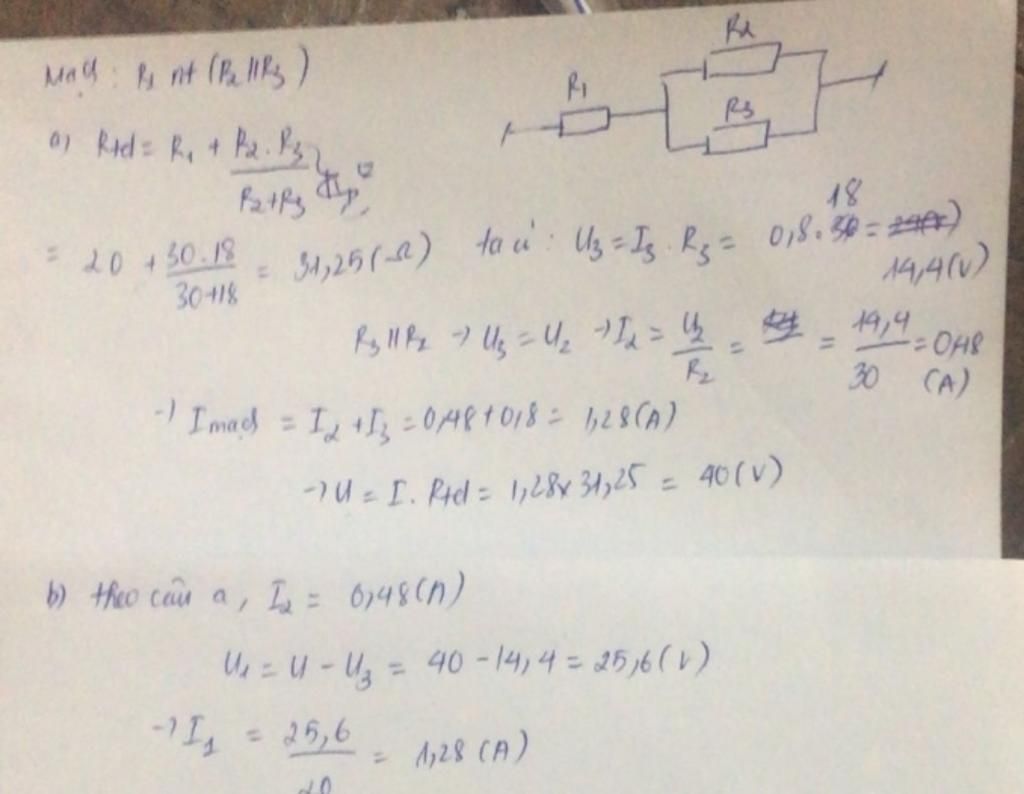 Mạch : R1 nt (R2 // R3)
R1
R2
R3
a) Rtđ = R1 + R2 . R3 / R2 + R3
= 20 + 30 . 18 / 30 + 18 = 31,25 (Ω)
ta có : U3 = I3 . R3 = 0,8 . 18 = 14,4 (V)
R3 // R2 → U3 = U2 → I2 = U2 / R2 = 14,4 / 30 = 0,48 (A)
→ I mạch = I2 + I3 = 0,48 + 0,8 = 1,28 (A)
→ U = I . Rtđ = 1,28 x 31,25 = 40 (V)
b) theo câu a, I2 = 0,48 (A)
U1 = U - U3 = 40 - 14,4 = 25,6 (V)
→ I1 = 25,6 / 20 = 1,28 (A)